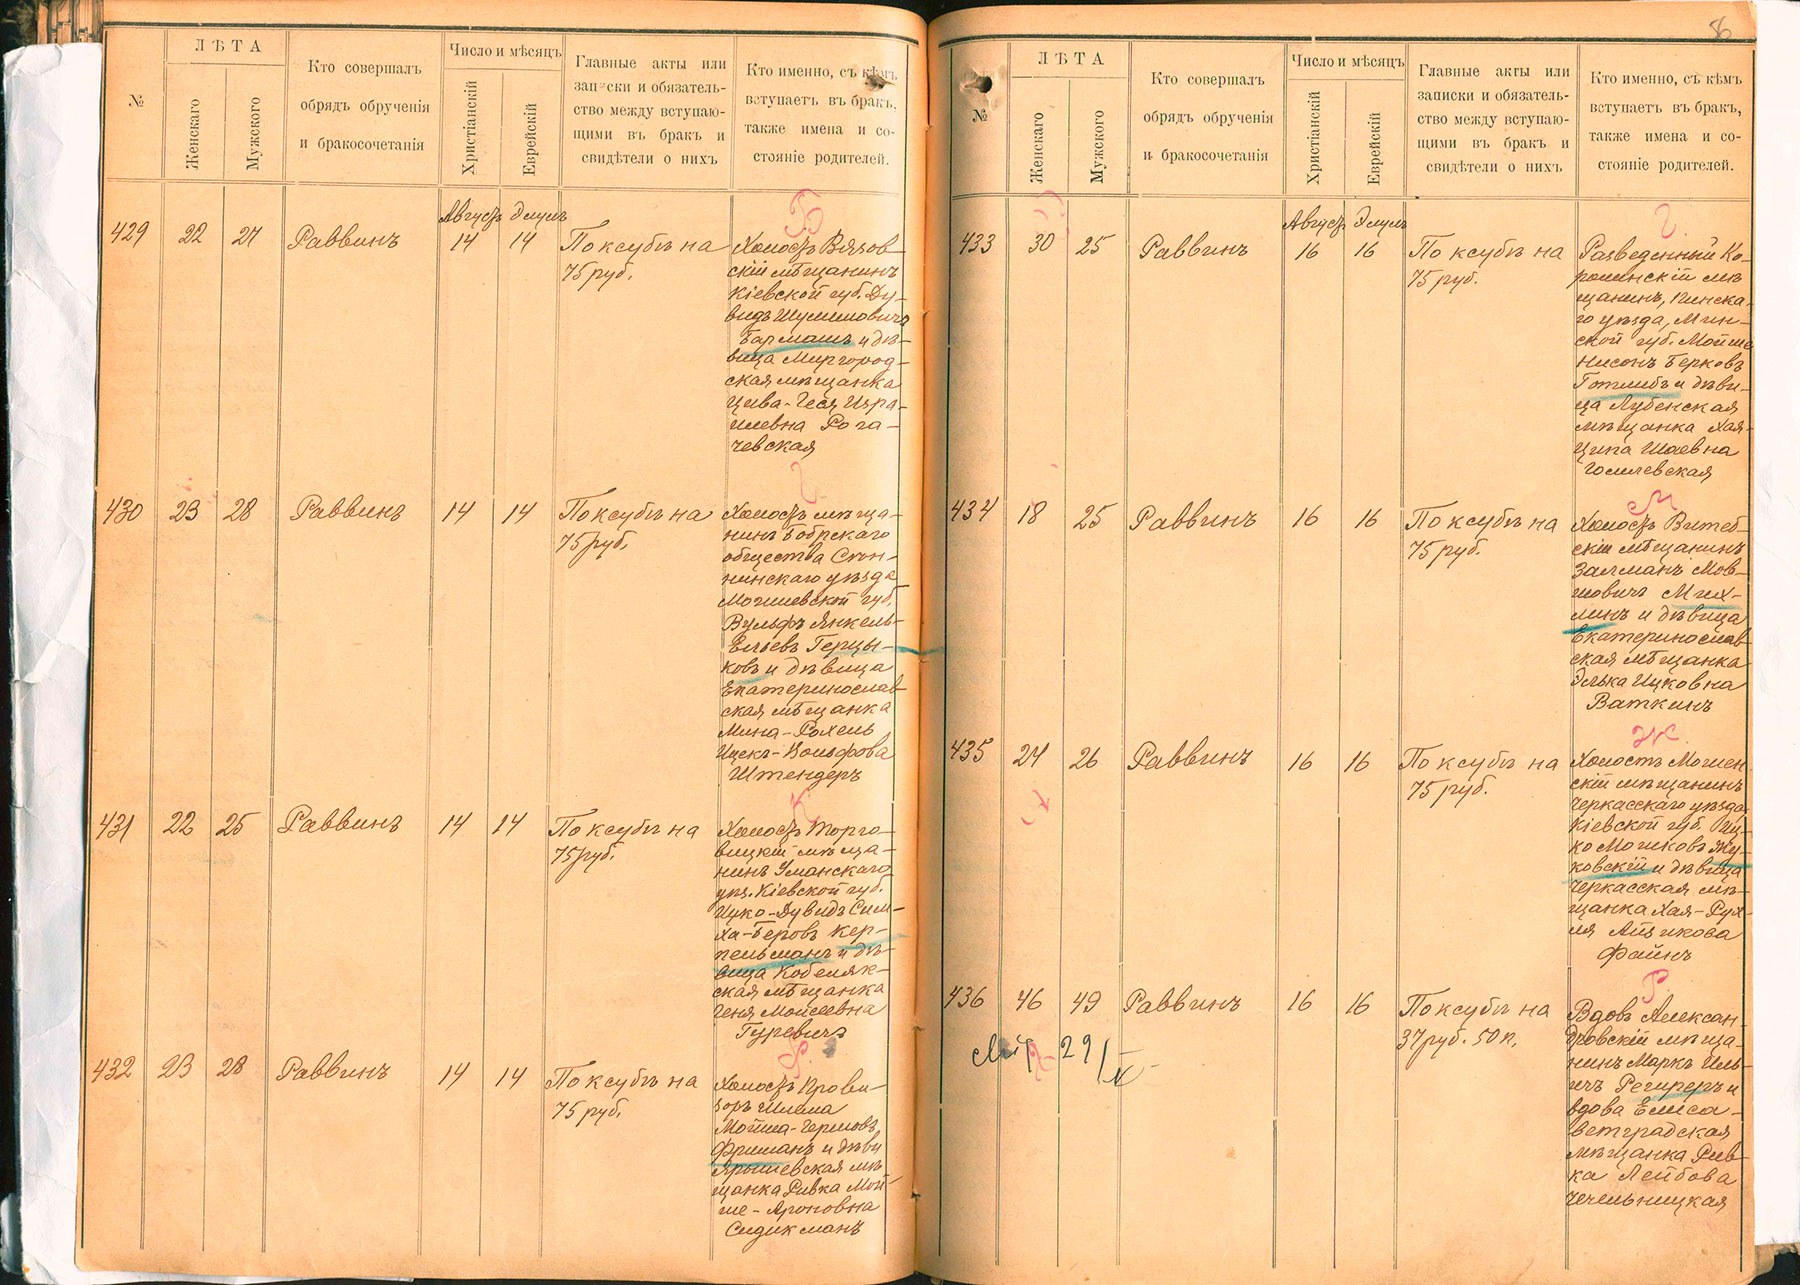 №
ЛѢТА
Женскаго
Мужского
Кто совершалъ
обрядъ обрученія
и бракосочетанія
Число и мѣсяцъ
Христіанскій
Еврейскій
Главные акты или
записки и обязатель-
ство между вступаю-
щими въ бракъ и
свидѣтели о нихъ
Кто именно, съ кѣмъ
вступаетъ въ бракъ,
также имена и со-
стояніе родителей.
Августъ Элулъ
Б
429 22 27 Раввинъ 14 14 По ксубѣ на
75 руб.
Холостъ Вязов-
скій мѣщанинъ
Кіевской губ. Ду-
видъ Шулимовичъ
Бармашъ и дѣ-
вица Миргород-
ская мѣщанка
Цива-Геся Изра-
илевна Рога-
чевская
Г
430 23 28 Раввинъ 14 14 По ксубѣ на
75 руб.
Холостъ мѣща-
нинъ Бобрскаго
общества Сѣн-
нинскаго уѣзда
Могилевской губ.
Вульфъ Янкель-
Ельевъ Герцы-
ковъ и дѣвица
Екатеринослав-
ская мѣщанка
Мина-Рохель
Ицекъ-Вольфова
Штендеръ
К
431 22 25 Раввинъ 14 14 По ксубѣ на
75 руб.
Холостъ Торго-
вицкій мѣща-
нинъ Уманскаго
уѣз. Кіевской губ.
Ицко-Дувидъ Сим-
ха-Беровъ Кер-
пельманъ и дѣ-
вица Кобеляк-
ская мѣщанка
Геня Моисеевна
Гуревичъ
Ф
432 23 28 Раввинъ 14 14 По ксубѣ на
75 руб.
Холостъ Прови-
зоръ Шлема
Мойша-Гершовъ
Фришманъ и дѣви
Ярошевская мѣ-
щанка Ривка Мой-
ше-Ароновна
Сидикманъ
8
№
ЛѢТА
Женскаго
Мужского
Кто совершалъ
обрядъ обрученія
и бракосочетанія
Число и мѣсяцъ
Христіанскій
Еврейскій
Главные акты или
записки и обязатель-
ство между вступаю-
щими въ бракъ и
свидѣтели о нихъ
Кто именно, съ кѣмъ
вступаетъ въ бракъ,
также имена и со-
стояніе родителей.
Августъ Элулъ
Г
433 30 25 Раввинъ 16 16 По ксубѣ на
75 руб.
Разведенный Ко-
ролинскій мѣ-
щанинъ, Пинска-
го уѣзда, Мин-
ской губ. Мойша
Нисонъ Берковъ
Готлибъ и дѣви-
ца Лубенская
мѣщанка Хая-
Ципа Шаевна
Гомлевская
М
434 18 25 Раввинъ 16 16 По ксубѣ на
75 руб.
Холостъ Витеб-
скій мѣщанинъ
Залманъ Мов-
шовичъ Мих-
линъ и дѣвица
Екатеринослав-
ская мѣщанка
Элька Ицковна
Ваткинъ
Ж
435 24 26 Раввинъ 16 16 По ксубѣ на
75 руб.
Холостъ Мошен-
скій мѣщанинъ
Черкасскаго уѣзда
Кіевской губ. Иц-
ко Мошковъ Жу-
ковскій и дѣвица
Черкасская мѣ-
щанка Хая-Рух-
ля Айзикова
Файнъ
Р
436 46 49 Раввинъ 16 16 По ксубѣ на
37 руб. 50 к.
Вдовъ Алексан-
дровскій мѣща-
нинъ Маркъ Иль-
ичъ Региреръ и
вдова Елиса-
ветградская
мѣщанка Рив-
ка Лейбова
Чечельницкая
29/